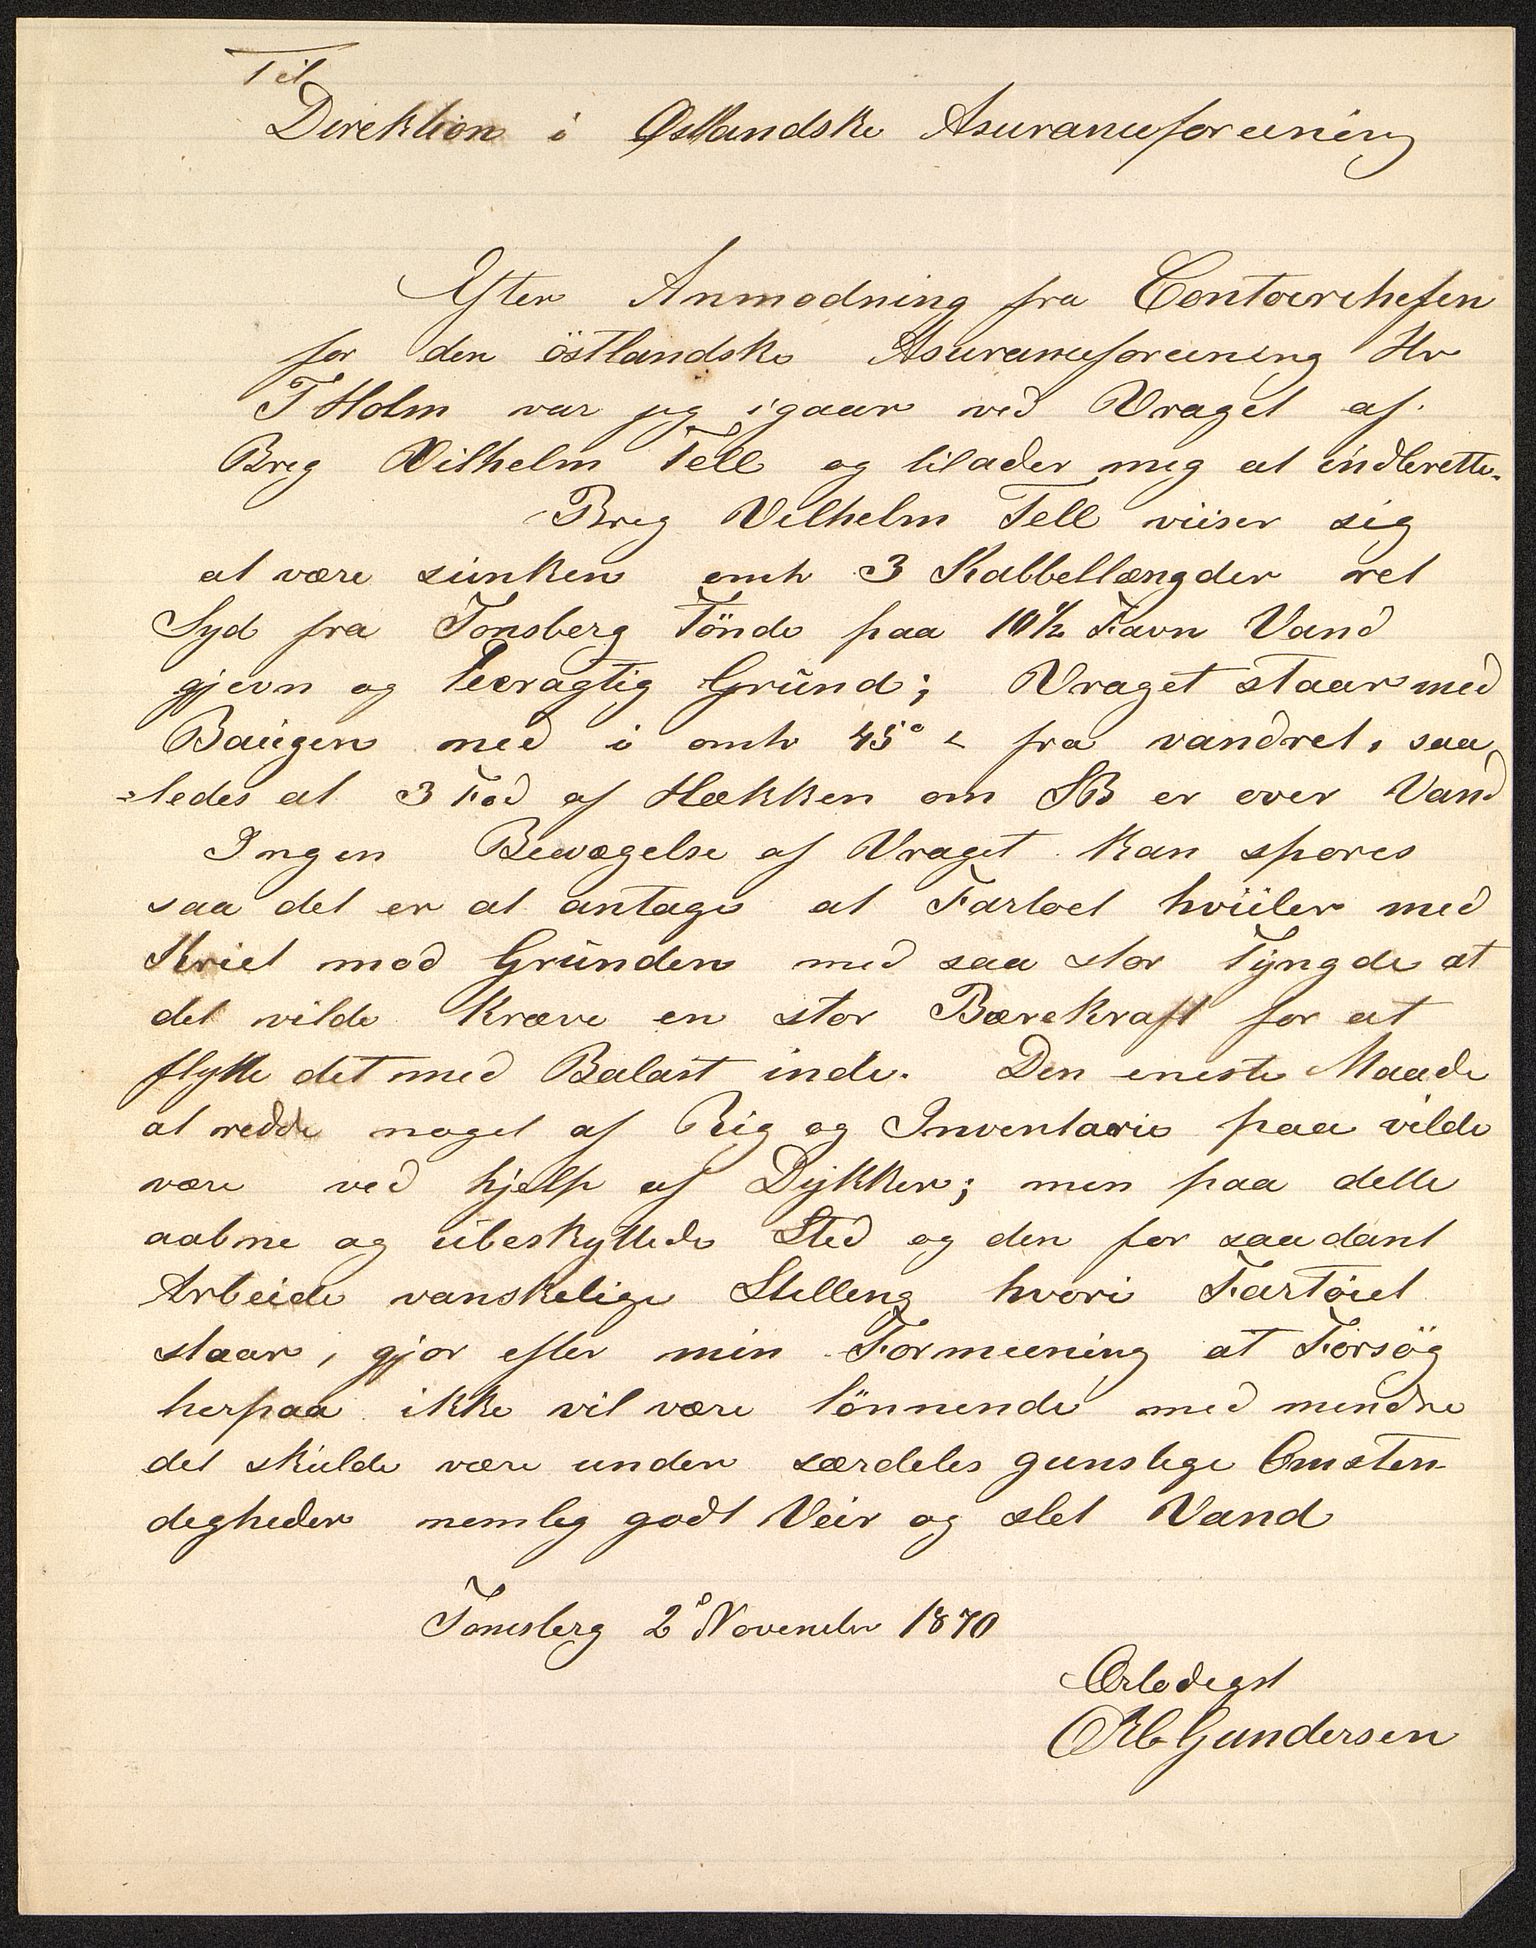 Til
Direktion i Østlandske Asuranceforeening
Efter Anmodning fra Contoirchefen
for den östlandske Asuranceforeening Hr
T Holm var jeg igaar ved Vraget af
Brig Vilhelm Tell og tilader mig at indberette.
Brig Vilhelm Tell viiser sig
at være sunken omtr 3 Kabbellængder ret
Syd fra Tonsberg Tönde paa 10½ Favn Vand
gjevn og leeragtig Grund; Vraget staar med
Baugen ned i omtr 45° ∠ fra vandret, saa
=ledes at 3 Fod af Hækken om SB er over Vand
Ingen Bevægelse af Vraget kan spores
saa det er at antage at Fartoet hviiler med
Kriet mod Grunden med saa stor Tyngde at
det vilde kræve en stor Bærekraft for at
flytte det med Balast inde. Den eneste Maade
at redde noget af Rig og Inventarie paa vilde
være ved hjelp af Dykker; men paa dette
aabne og ubeskyttede Sted og den for saadant
Arbeide vanskelige Stilling hvori Fartöiet
staar, gjor efter min Formeening at Forsög
herpaa ikke vil være lönnende med mindre
det skulde være under særdeles gunstige Omsten
digheder nemlig godt Veir og slet Vand
Tonsberg 2 November 1870
Ærbödigst
Gundersen